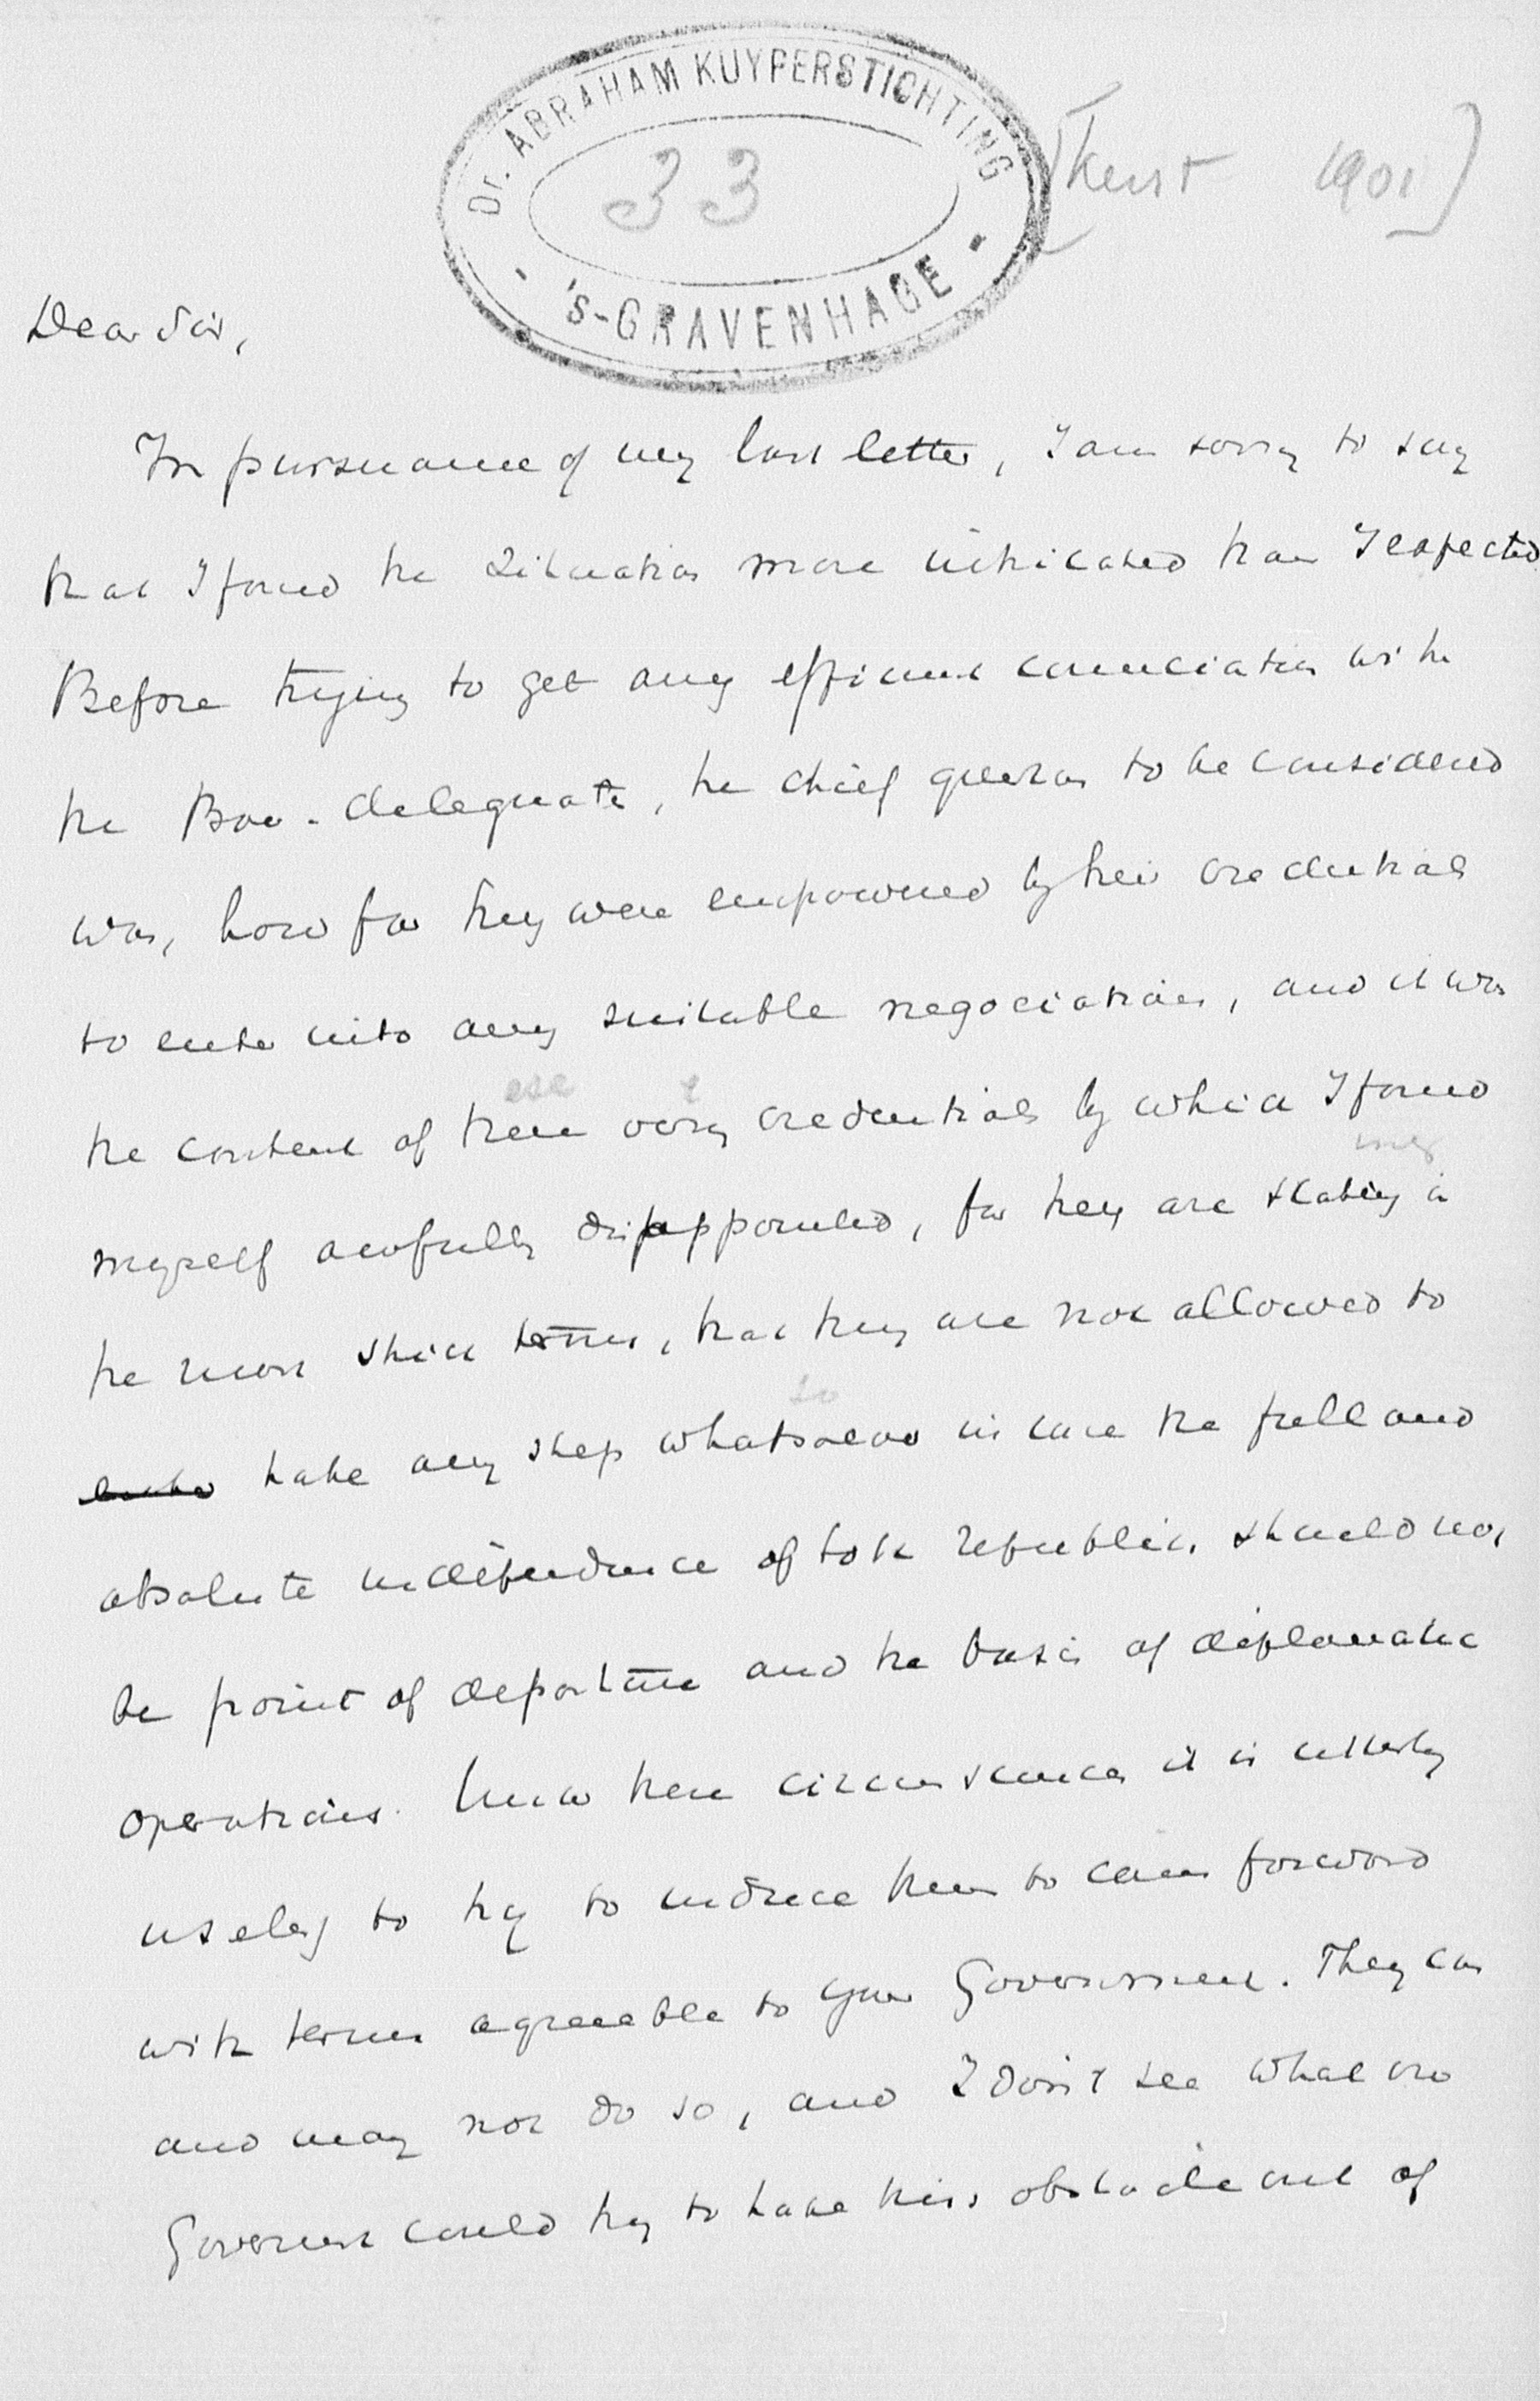 Dr. ABRAHAM KUYPERSTICHTING
33
'S-GRAVENHAGE
[Kerst 1901]
Dear Sir,
In pursuance of my last letter, I am sorry to say
that I found the situation more intricated than I expected.
Before trying to get any efficient conciliation with
the Boer-delegates, the chief question to be considered
was, how far they were empowered by their credentials
to enter into any suitable negociations, and it was
ese
the content of these very credentials by which I found
myself awfully disappointed, for they are stating in
the most strict terms, that they are not allowed to
so
take any step whatsoever in case the full and
absolute independence of both republics should not
be point of departure and the basis of diplomatic
operations. Under these circumstances it is utterly
useless to try to induce them to come forward
with terms agreeable to your Government. They can
and may not do so, and I don't see what our
Government could try to take this obstacle out of